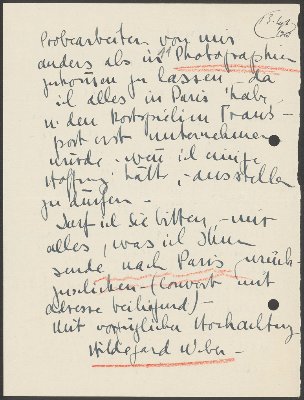 Probearbeiten von mir
anders als in Photographien
zukommen zu lassen – da
ich alles in Paris habe
u den kostspieligen Trans-
port erst unternehmen
würde, wenn ich einige
Hoffnung hätte, – ausstellen
zu dürfen –
Darf ich Sie bitten, – mir
alles, was ich Ihnen
sende nach Paris zurück-
zuschicken – (Couvert mit
adresse beiliegend) –
Mit vorzüglicher Hochachtung
Hildegard Weber –